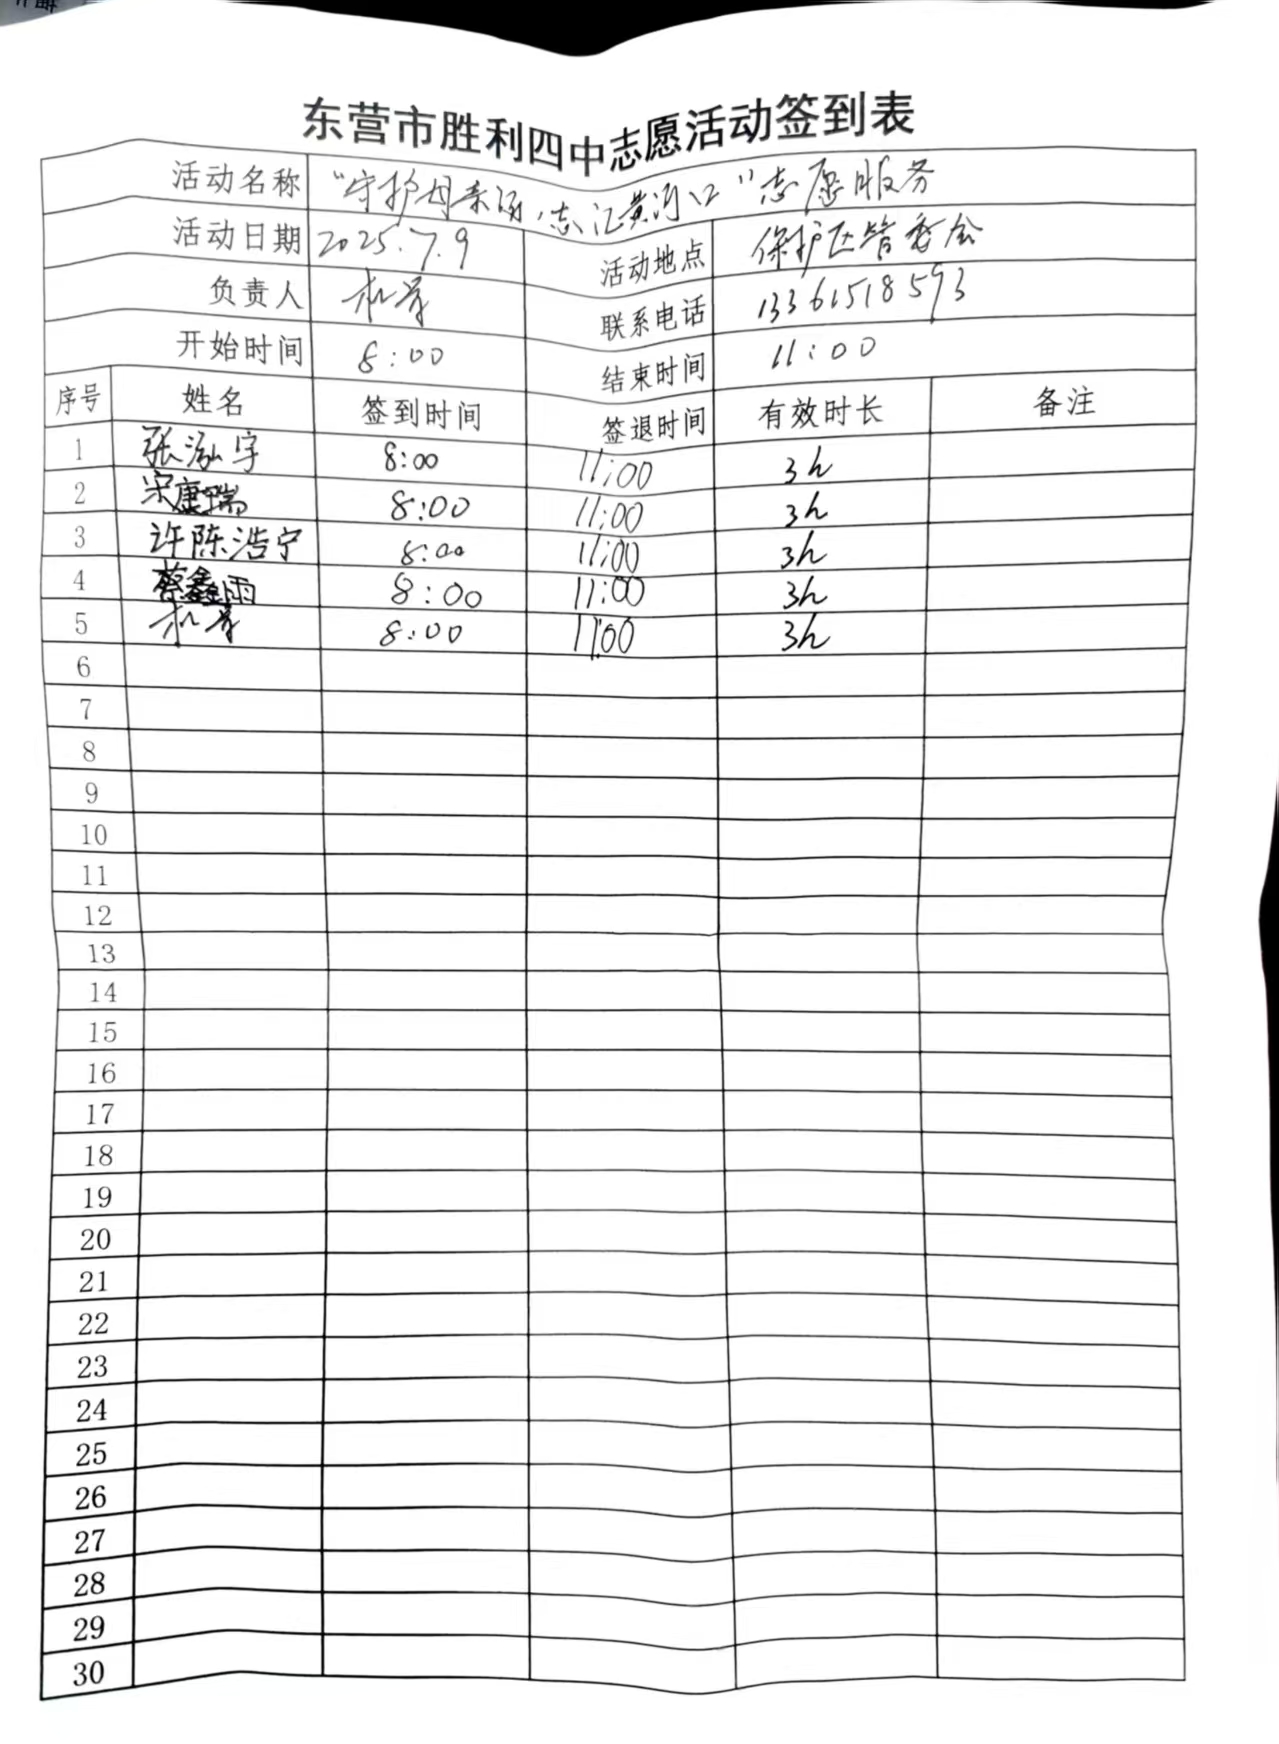 东营市胜利四中志愿活动签到表
活动名称 “守护母亲河，志汇黄河口”志愿服务
活动日期 2025.7.9 活动地点 保护区管委会
负责人 联系电话 13361518593
开始时间 8:00 结束时间 11:00
序号 姓名 签到时间 签退时间 有效时长 备注
1 张泓宇 8:00 11:00 3h
2 宋康瑞 8:00 11:00 3h
3 许陈浩宁 8:00 11:00 3h
4 蔡鑫雨 8:00 11:00 3h
5 8:00 11:00 3h
6
7
8
9
10
11
12
13
14
15
16
17
18
19
20
21
22
23
24
25
26
27
28
29
30